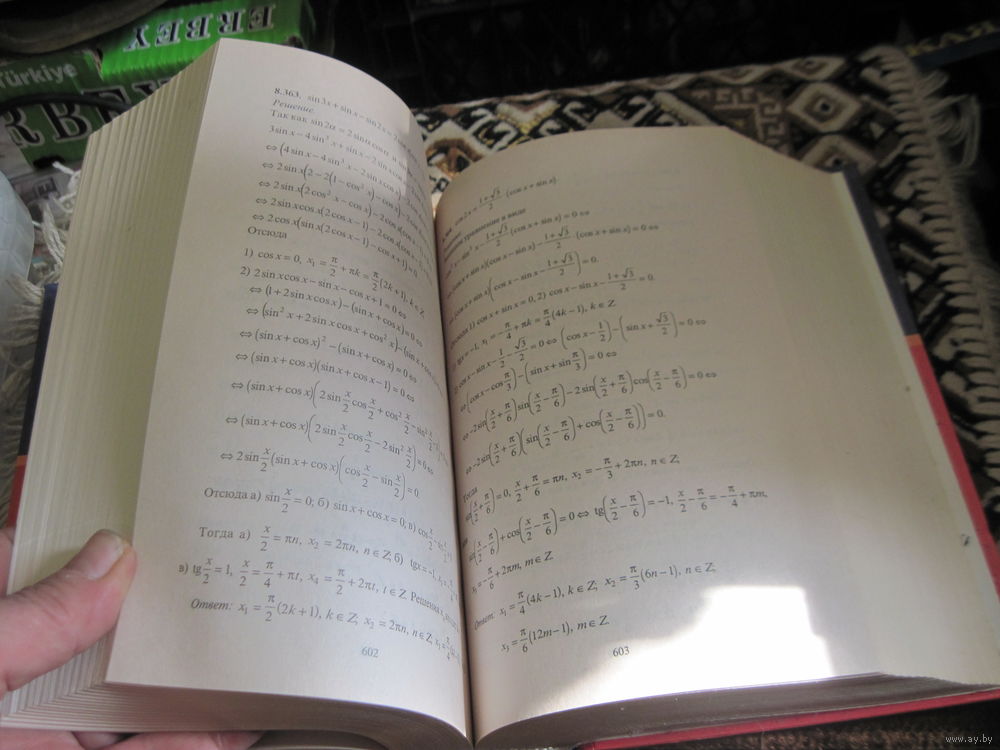 ERBEY
Türkiye
ERBE
КАЯ
8.363. sin3x + sin x − sin2x = 2
Решение.
Так как sin2α = 2sinα cosα и
3sin x − 4sin³ x + sin x − 2sin x cos
⇔ (4sin x − 4sin³ x − 2sin x cos
⇔ 2sin x(2 − 2(1 − cos² x) − cos x) − 2cos
⇔ 2sin x(2cos² x − cos x) − 2cos x(
⇔ 2sin x cos x(2cos x − 1) − 2cos x(cos
⇔ 2cos x(sin x(2cos x − 1) − cos x + 1) = 0
Отсюда
1) cos x = 0, x₁ = π/2 + πk = π/2(2k + 1), k ∈ Z;
2) 2sin x cos x − sin x − cos x + 1 = 0 ⇔
⇔ (1 + 2sin x cos x) − (sin x + cos x) = 0 ⇔
⇔ (sin² x + 2sin x cos x + cos² x) − (sin x + cos
⇔ (sin x + cos x)² − (sin x + cos x) = 0 ⇔
⇔ (sin x + cos x)(sin x + cos x − 1) = 0 ⇔
⇔ (sin x + cos x)(2sin x/2 cos x/2 + cos² x/2 − sin² x/2
⇔ (sin x + cos x)(2sin x/2 cos x/2 − 2sin² x/2) = 0 ⇔
⇔ 2sin x/2 (sin x + cos x)(cos x/2 − sin x/2) = 0.
Отсюда а) sin x/2 = 0; б) sin x + cos x = 0, в) cos x/2 −
Тогда а) x/2 = πn, x₂ = 2πn, n ∈ Z; б) tgx = −1,
в) tg x/2 = 1, x/2 = π/4 + πt, x₄ = π/2 + 2πt, t ∈ Z. Решения
Ответ: x₁ = π/2(2k + 1), k ∈ Z; x₂ = 2πn, n ∈ Z; x₃ = π/4
602
cos2x = (1 + √3)/2 · (cos x + sin x)
уравнение в виде
x − sin² x − (1 + √3)/2 · (cos x + sin x) = 0 ⇔
(cos x + sin x)(cos x − sin x) − (1 + √3)/2 · (cos x + sin x) = 0 ⇔
(cos x + sin x)(cos x − sin x − (1 + √3)/2) = 0.
1) cos x + sin x = 0, 2) cos x − sin x − (1 + √3)/2 = 0.
tgx = −1, x₁ = −π/4 + πk = π/4(4k − 1), k ∈ Z
cos x − sin x − 1/2 − √3/2 = 0 ⇔ (cos x − 1/2) − (sin x + √3/2) = 0 ⇔
⇔ (cos x − cos π/3) − (sin x + sin π/3) = 0 ⇔
⇔ −2sin(x/2 + π/6)sin(x/2 − π/6) − 2sin(x/2 + π/6)cos(x/2 − π/6) = 0 ⇔
⇔ −2sin(x/2 + π/6)(sin(x/2 − π/6) + cos(x/2 − π/6)) = 0.
Тогда
sin(x/2 + π/6) = 0, x/2 + π/6 = πn, x₂ = −π/3 + 2πn, n ∈ Z,
sin(x/2 − π/6) + cos(x/2 − π/6) = 0 ⇔ tg(x/2 − π/6) = −1, x/2 − π/6 = −π/4 + πm,
x₃ = −π/6 + 2πm, m ∈ Z.
Ответ: x₁ = π/4(4k − 1), k ∈ Z; x₂ = π/3(6n − 1), n ∈ Z;
x₃ = π/6(12m − 1), m ∈ Z.
603
www.ay.by